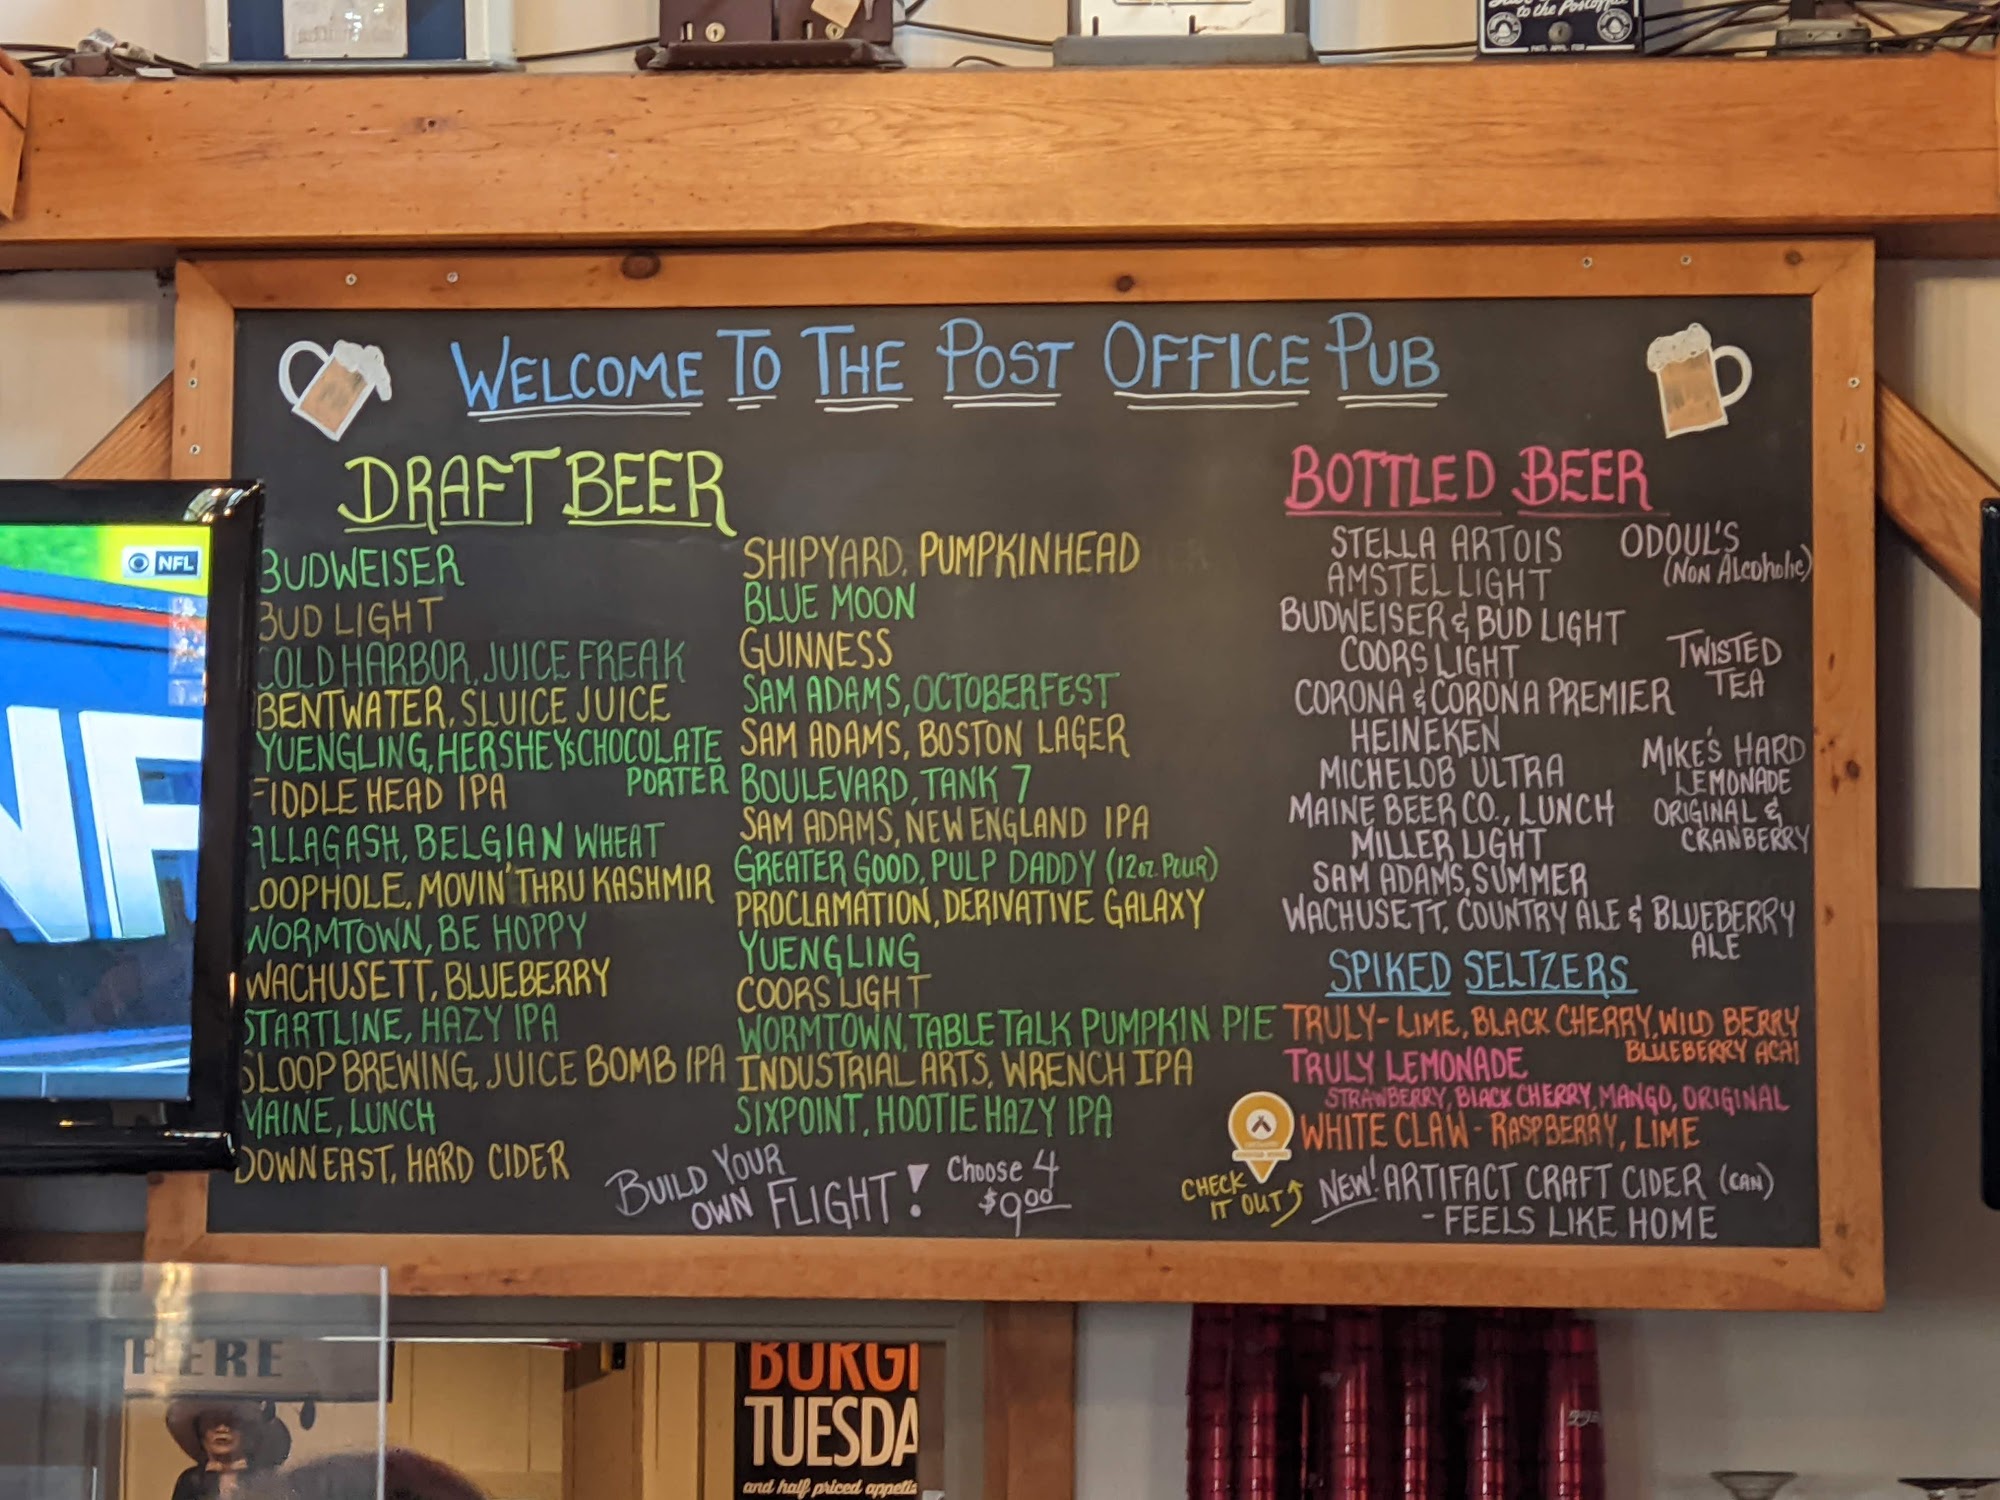 to the Postoffice
WELCOME TO THE POST OFFICE PUB
DRAFT BEER
BUDWEISER
BUD LIGHT
COLD HARBOR, JUICE FREAK
BENTWATER, SLUICE JUICE
YUENGLING, HERSHEYS CHOCOLATE
PORTER
FIDDLE HEAD IPA
ALLAGASH, BELGIAN WHEAT
LOOPHOLE, MOVIN' THRU KASHMIR
WORMTOWN, BE HOPPY
WACHUSETT, BLUEBERRY
STARTLINE, HAZY IPA
SLOOP BREWING, JUICE BOMB IPA
MAINE, LUNCH
DOWNEAST, HARD CIDER
SHIPYARD, PUMPKINHEAD
BLUE MOON
GUINNESS
SAM ADAMS, OCTOBERFEST
SAM ADAMS, BOSTON LAGER
BOULEVARD, TANK 7
SAM ADAMS, NEW ENGLAND IPA
GREATER GOOD, PULP DADDY (12oz. POUR)
PROCLAMATION, DERIVATIVE GALAXY
YUENGLING
COORS LIGHT
WORMTOWN, TABLE TALK PUMPKIN PIE
INDUSTRIAL ARTS, WRENCH IPA
SIXPOINT, HOOTIE HAZY IPA
BUILD YOUR
OWN FLIGHT!
Choose 4
$9.00
BOTTLED BEER
STELLA ARTOIS
AMSTEL LIGHT
BUDWEISER & BUD LIGHT
COORS LIGHT
CORONA & CORONA PREMIER
HEINEKEN
MICHELOB ULTRA
MAINE BEER CO., LUNCH
MILLER LIGHT
SAM ADAMS, SUMMER
WACHUSETT, COUNTRY ALE & BLUEBERRY
ALE
ODOUL'S
(NON Alcoholic)
TWISTED
TEA
MIKE'S HARD
LEMONADE
ORIGINAL &
CRANBERRY
SPIKED SELTZERS
TRULY- LIME, BLACK CHERRY, WILD BERRY
BLUEBERRY ACAI
TRULY LEMONADE
STRAWBERRY, BLACK CHERRY, MANGO, ORIGINAL
WHITE CLAW - RASPBERRY, LIME
CHECK
IT OUT
NEW! ARTIFACT CRAFT CIDER (CAN)
- FEELS LIKE HOME
NFL
HERE
BURGE
TUESDA
and half priced appetiz